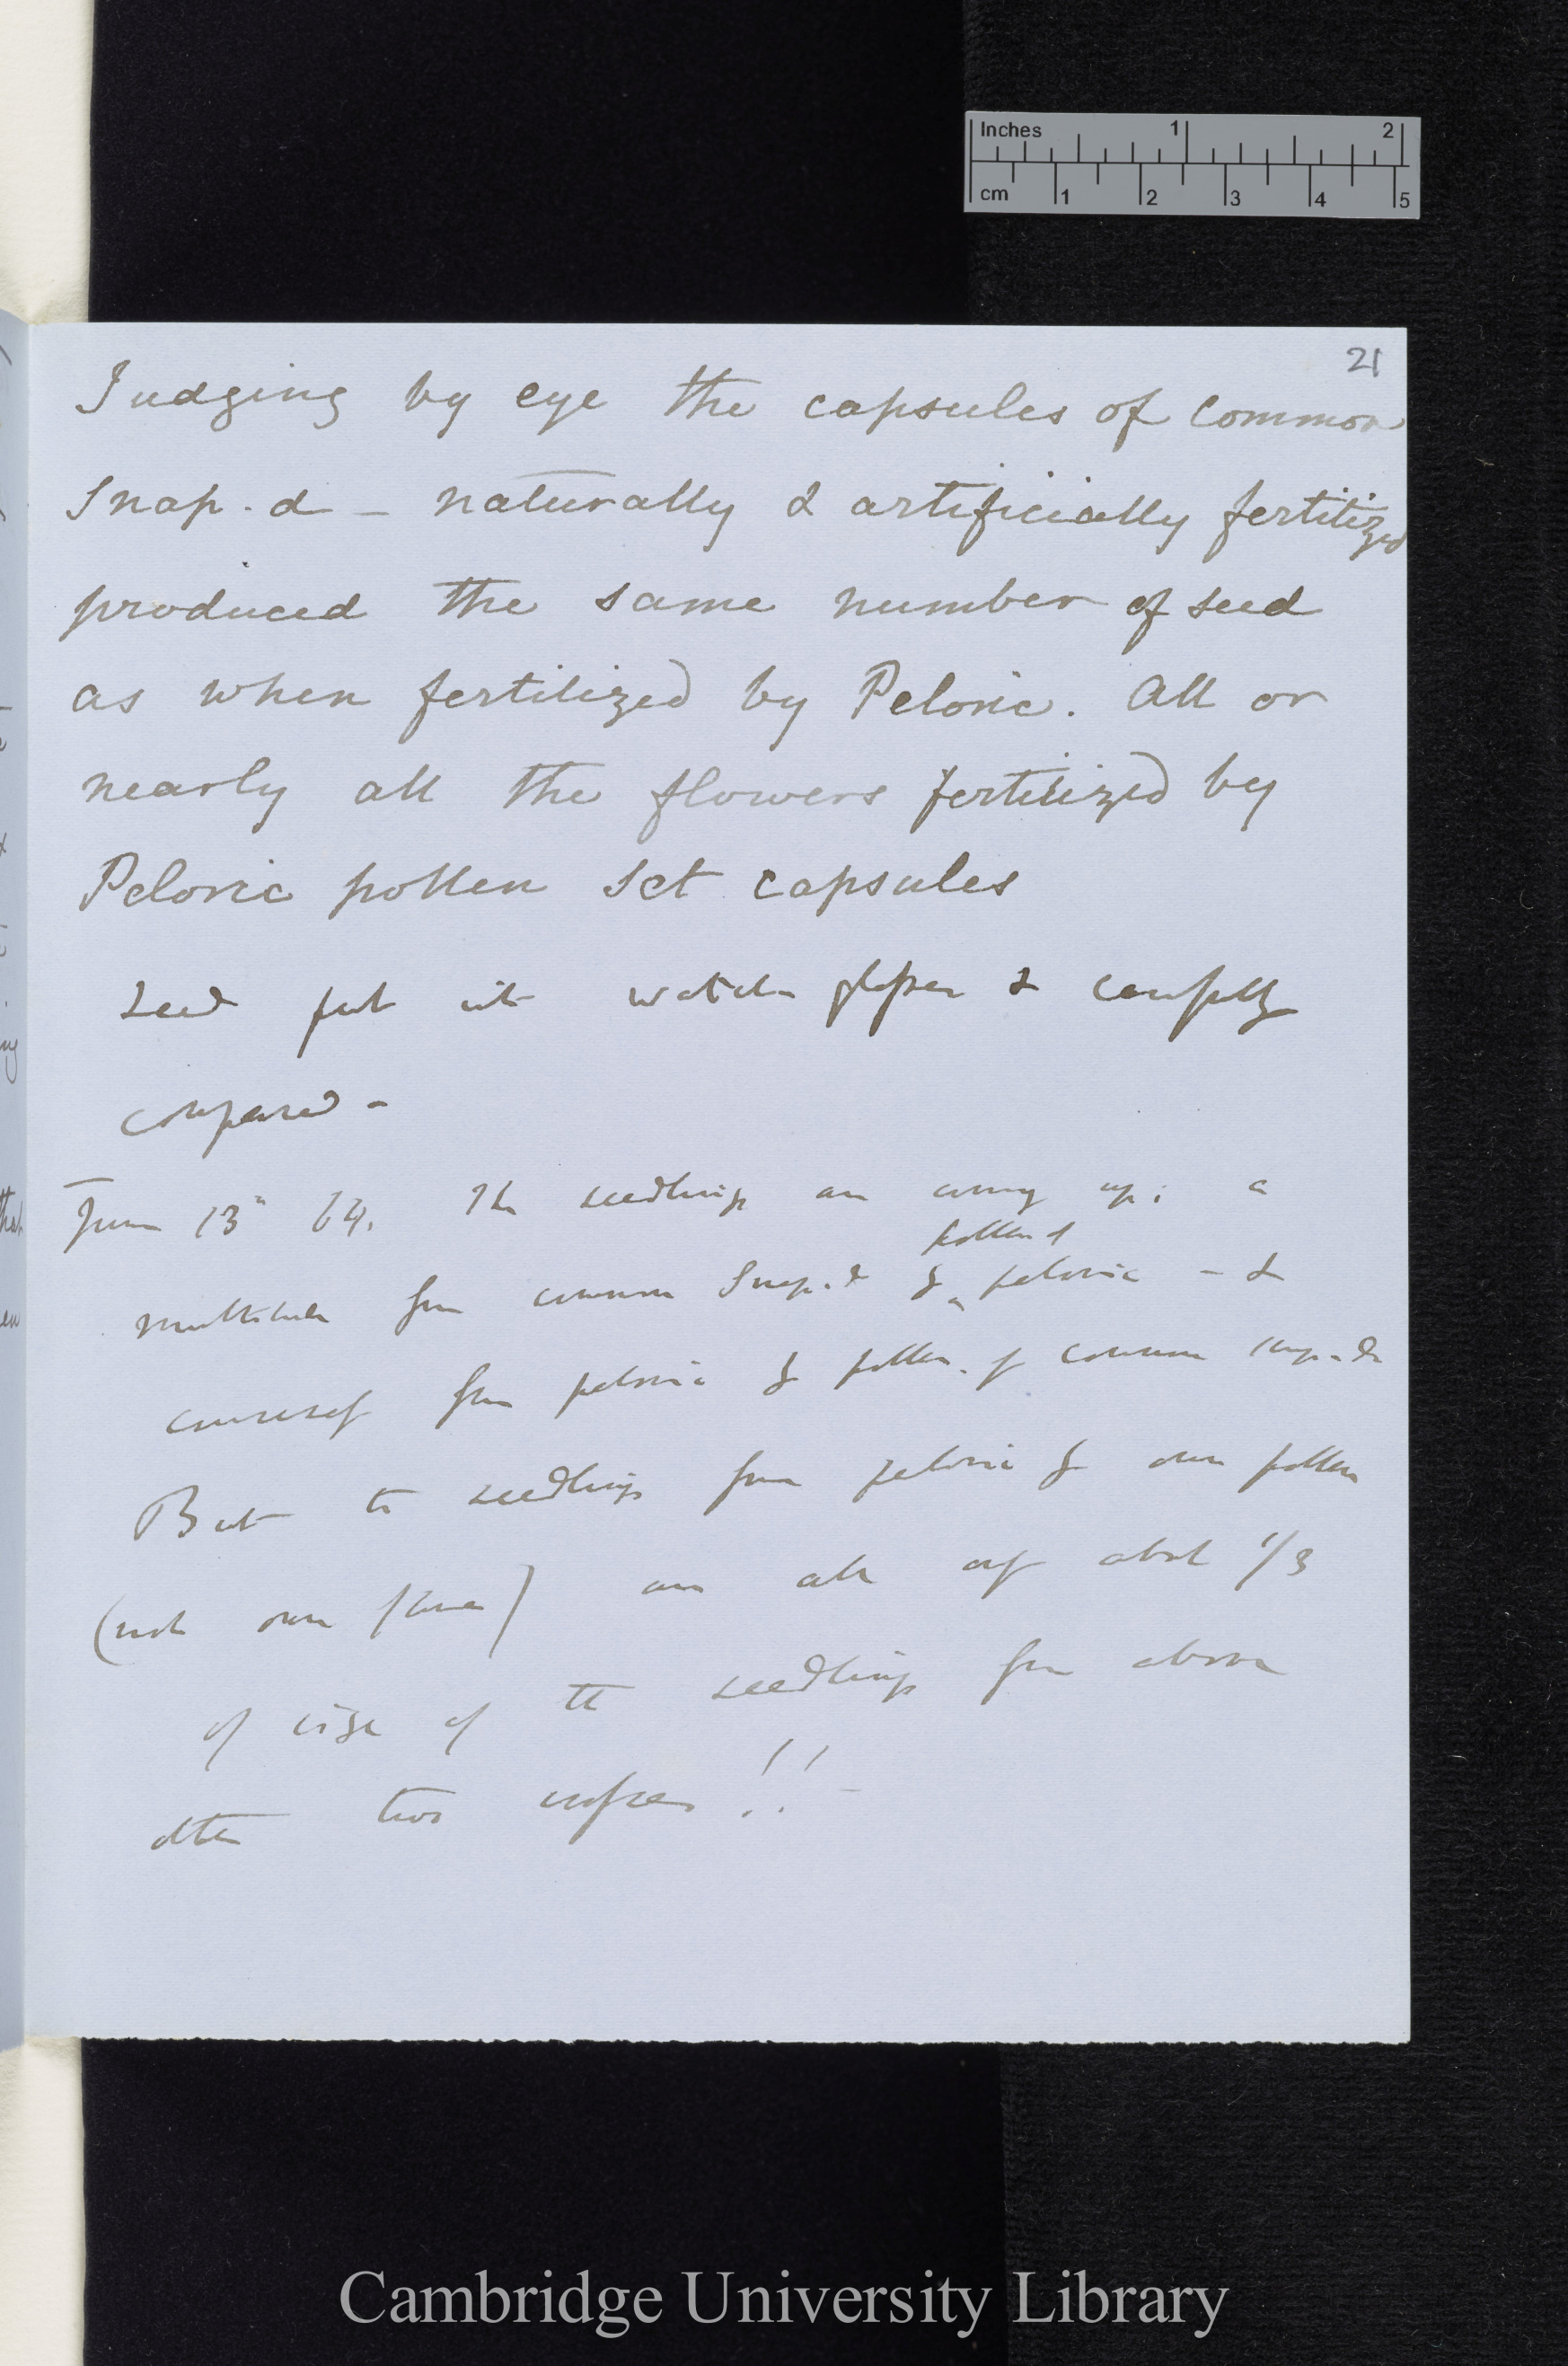 Inches 1 2
cm 1 2 3 4 5
21
Judging by eye the capsules of common
Snap.d – naturally & artificially fertilized
produced the same number of seed
as when fertilized by Peloric. All or
nearly all the flowers fertilized by
Peloric pollen set capsules
Seed put in watch glasses & carefully
compared –
June 13th 64. The seedlings are coming up; a
pollen of
multitude from common Snap.d by peloric – &
conversely from peloric by pollen of common snap-d
But the seedlings from peloric by own pollen
(not own flower) are all only about 1/3
of size of the seedlings from above
other two crosses!! –
Cambridge University Library